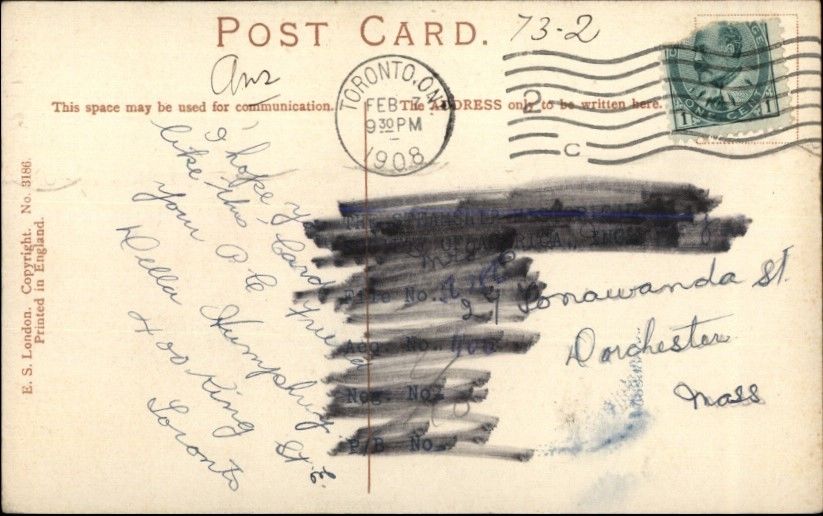 POST CARD.
73-2
Ans
TORONTO, ONT.
FEB 7
9 30 PM
1908
2
C
POSTAGE
ONE CENT
1 1
This space may be used for communication.
The ADDRESS only to be written here.
I hope y
like this Card
your P C friend
Della Humphrey
400 King St E.
Toronto
THE STEAMSHIP
OF AMERICA, INC.
File No.
Acq. No.
Neg. No.
P/B No.
27 Tonawanda St.
Dorchester
Mass
E. S. London. Copyright. No. 3186.
Printed in England.